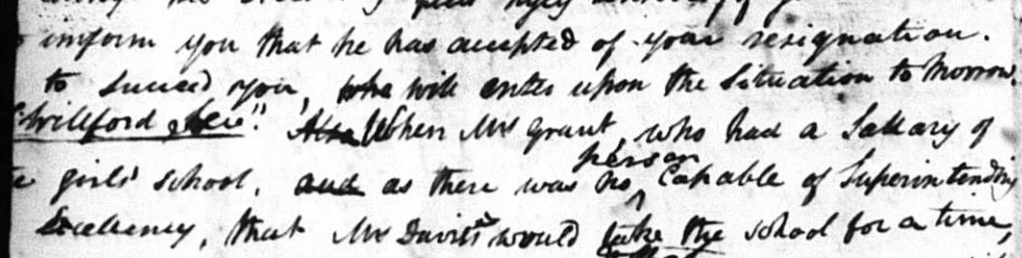 inform you that he has accepted of your resignation.
to succeed you, who will enter upon the Situation to Morrow.
When Mrs Grant, who had a Sallary of
girls' school, and as there was no person Capable of Superintending
Excellency, that Mrs Davis's would take the school for a time,